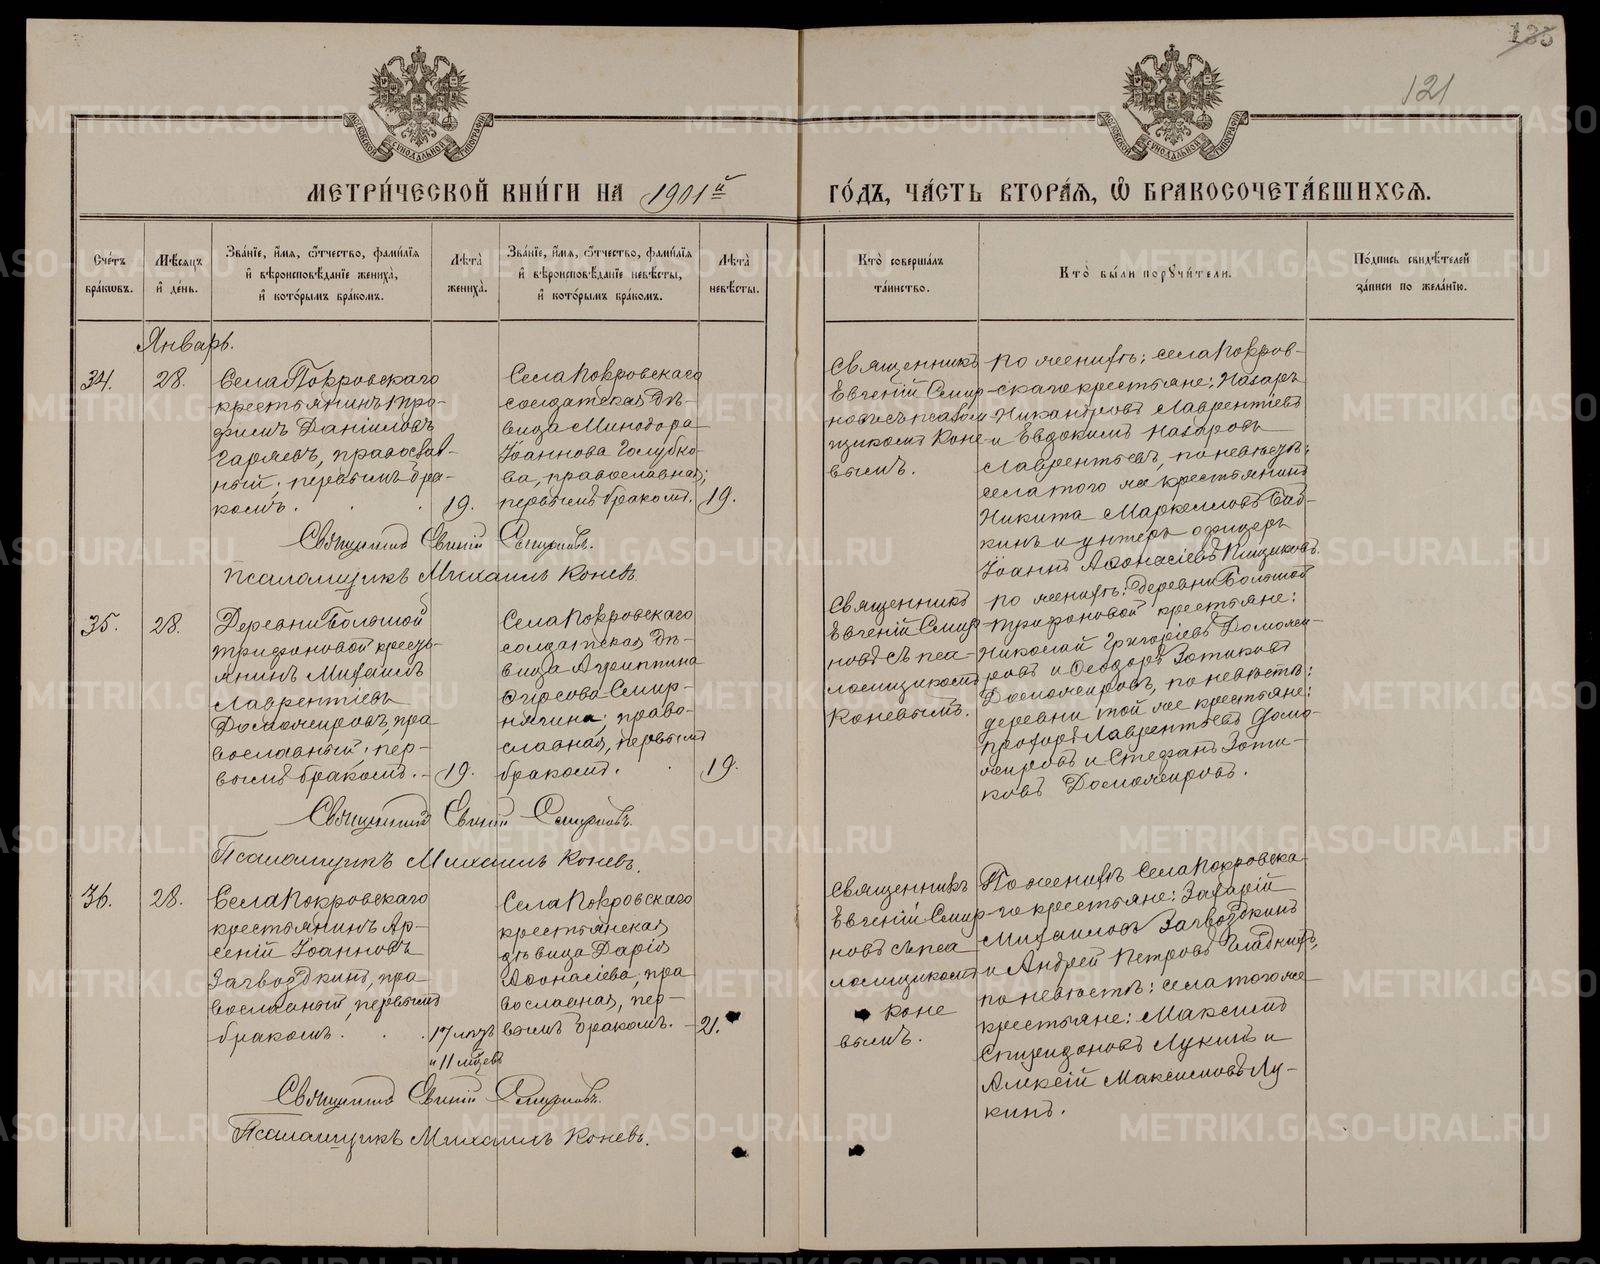 135
121
МОСКОВСКОЙ СУНОДАЛЬНОЙ ТИПОГРАФIИ
МОСКОВСКОЙ СУНОДАЛЬНОЙ ТИПОГРАФIИ
МЕТРИ́ЧЕСКОЙ КНИ́ГИ НА 1901й
ГО́ДЪ, ЧА́СТЬ ВТОРА́Я, Ѽ БРАКОСОЧЕТА́ВШИХСЯ.
Сче́тъ бра́кѡвъ.
Мѣ́сяцъ и҆ де́нь.
Зва́нїе, и҆́мя, ѻ҆́тчество, фами́лїя и҆ вѣроисповѣ́данїе жениха̀, и҆ кото́рымъ бра́комъ.
Лѣ́та жениха̀.
Зва́нїе, и҆́мя, ѻ҆́тчество, фами́лїя и҆ вѣроисповѣ́данїе невѣ́сты, и҆ кото́рымъ бра́комъ.
Лѣ́та невѣ́сты.
Кто̀ соверша́лъ та́инство.
Кто̀ бы́ли порꙋчи́тели.
По́дпись свидѣ́телей за́писи по жела́нїю.
Январь.
34.
28.
Села Покровскаго
крестьянинъ Тро-
фимъ Данииловъ
Гаряевъ, православ-
ный, первымъ бра-
комъ.
19.
Села Покровскаго
солдатская дѣ-
вица Минодора
Іоаннова Голубко-
ва, православная,
первымъ бракомъ.
19.
Священникъ
Евгеній Смир-
новъ съ псалом-
щикомъ Коне-
вымъ.
По женихѣ: села Покров-
скаго крестьяне: Назаръ
Никандровъ Лаврентьевъ
и Евдокимъ Назаровъ
Лаврентьевъ, по невѣстѣ:
села того же крестьянинъ
Никита Маркелловъ Баб-
кинъ и унтеръ офицеръ
Іоаннъ Аѳонасіевъ Пищиковъ.
Священникъ Евгеній Смирновъ.
Псаломщикъ Михаилъ Коневъ.
35.
28.
Деревни Большой
Трифоновой кресть-
янинъ Михаилъ
Лаврентіевъ
Доможировъ, пра-
вославный, пер-
вымъ бракомъ.
19.
Села Покровскаго
солдатская дѣ-
вица Агриппина
Смир-
нягина, право-
славная, первымъ
бракомъ.
19.
Священникъ
Евгеній Смир-
новъ съ пса-
ломщикомъ
Коневымъ.
По женихѣ: деревни Большой
Трифоновой крестьяне:
Николай Григоріевъ Доможи-
ровъ и Ѳеодоръ Зотиковъ
Доможировъ, по невѣстѣ:
деревни той же крестьяне:
Прохоръ Лаврентьевъ Домо-
жировъ и Стефанъ Зоти-
ковъ Доможировъ.
Священникъ Евгеній Смирновъ.
Псаломщикъ Михаилъ Коневъ.
36.
28.
Села Покровскаго
крестьянинъ Ар-
сеній Іоанновъ
Загвоздкинъ, пра-
вославный, первымъ
бракомъ.
17 лѣтъ
и 11 мѣсяцевъ
Села Покровскаго
крестьянская
дѣвица Дарія
Аѳонасіева, пра-
вославная, пер-
вымъ бракомъ.
21.
Священникъ
Евгеній Смир-
новъ съ пса-
ломщикомъ
Коне
вымъ.
По женихѣ Села Покровска-
го крестьяне: Захарій
Михаиловъ Загвоздкинъ
и Андрей Петровъ Гладкихъ,
по невѣстѣ: села того же
крестьяне: Максимъ
Спиридоновъ Лукинъ и
Алексій Максимовъ Лу-
кинъ.
Священникъ Евгеній Смирновъ.
Псаломщикъ Михаилъ Коневъ.
METRIKI.GASO-URAL.RU